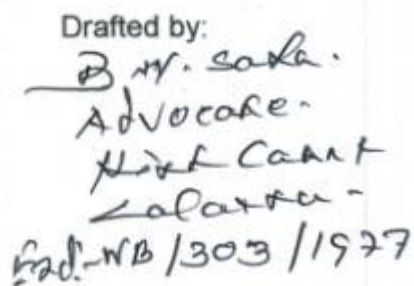 Drafted by:
B. N. Saha.
Advocate.
High Court
Calcutta -
End.-WB/303/1977